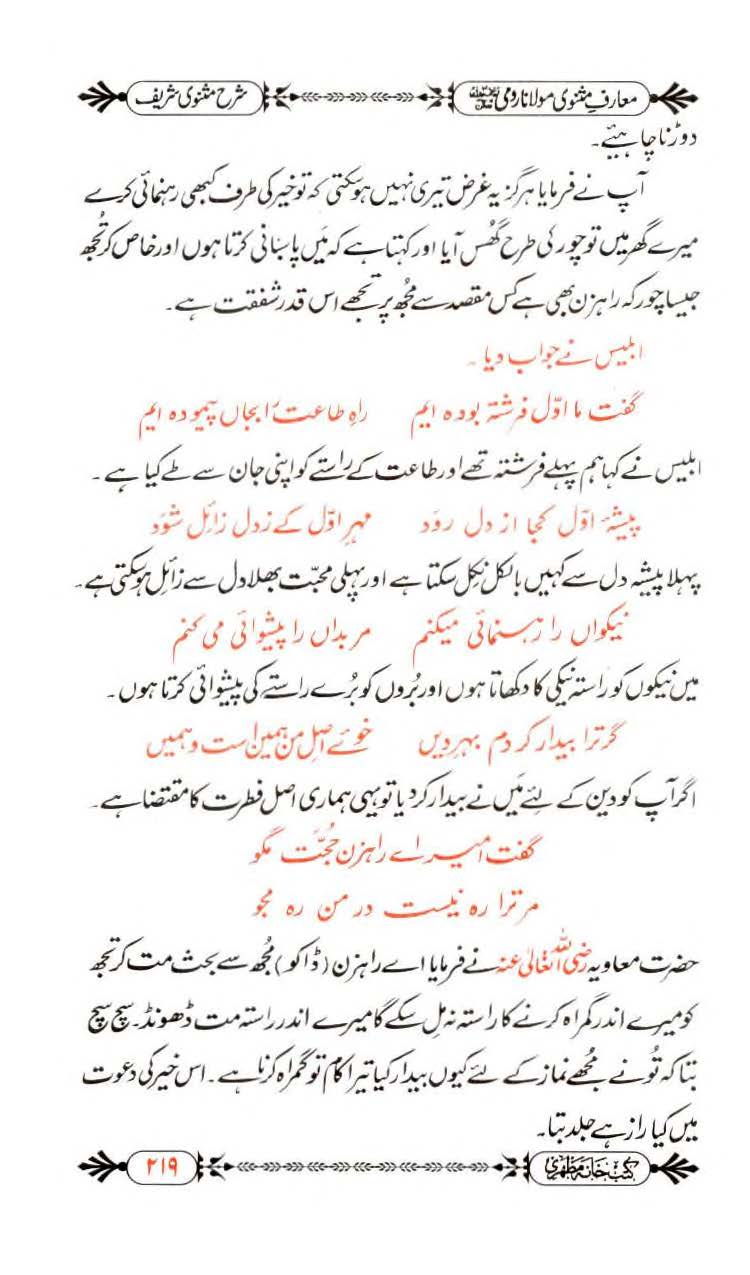 معارفِ مثنوی مولانا رومی شرح مثنوی شریف
دوڑنا چاہیئے۔
آپ نے فرمایا ہرگز یہ غرض تیری نہیں ہوسکتی کہ تو خیر کی طرف کبھی رہنمائی کرے
میرے گھر میں تو چور کی طرح گھُس آیا اور کہتا ہے کہ مَیں پاسبانی کرتا ہوں اور خاص کر تُجھ
جیسا چور کہ راہزن بھی ہے کس مقصد سے مُجھ پر تجھے اس قدر شفقت ہے۔
ابلیس نے جواب دیا۔
گفت ما اوّل فرشتہ بودہ ایم راہِ طاعت را بجاں پیمودہ ایم
ابلیس نے کہا ہم پہلے فرشتہ تھے اور طاعت کے راستے کو اپنی جان سے طے کیا ہے۔
پیشۂ اوّل کجا از دل رود مہرِ اوّل کے زدل زائل شود
پہلا پیشہ دل سے کہیں بالکل نِکل سکتا ہے اور پہلی محبّت بھلا دل سے زائل ہوسکتی ہے۔
نیکواں را رہنمائی میکنم مر بداں را پیشوائی می کنم
میں نیکوں کو راستہ نیکی کا دکھاتا ہوں اور بُروں کو بُرے راستے کی پیشوائی کرتا ہوں۔
گر ترا بیدار کردم بہرِ دیں خوئے اصلِ من ہمین است و ہمیں
اگر آپ کو دین کے لئے مَیں نے بیدار کردیا تو یہی ہماری اصل فطرت کا مقتضا ہے۔
گفت امیر اے راہزن حُجّت مگو
مر ترا رہ نیست در من رہ مجو
حضرت معاویہ رضی اللہ تعالیٰ عنہ نے فرمایا اے راہزن (ڈاکو) مُجھ سے بحث مت کر تجھ
کو میرے اندر گمراہ کرنے کا راستہ نہ مِل سکے گا میرے اندر راستہ مت ڈھونڈ۔ سچ سچ
بتا کہ تُو نے مُجھے نماز کے لئے کیوں بیدار کیا تیرا کام تو گمراہ کرنا ہے۔ اس خیر کی دعوت
میں کیا راز ہے جلد بتا۔
کتب خانہ مظہری ۲۱۹